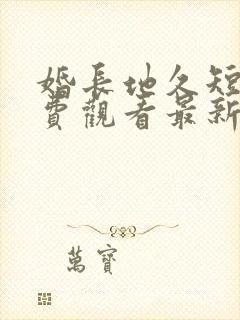 婚長地久短
費觀看最新
萬寶